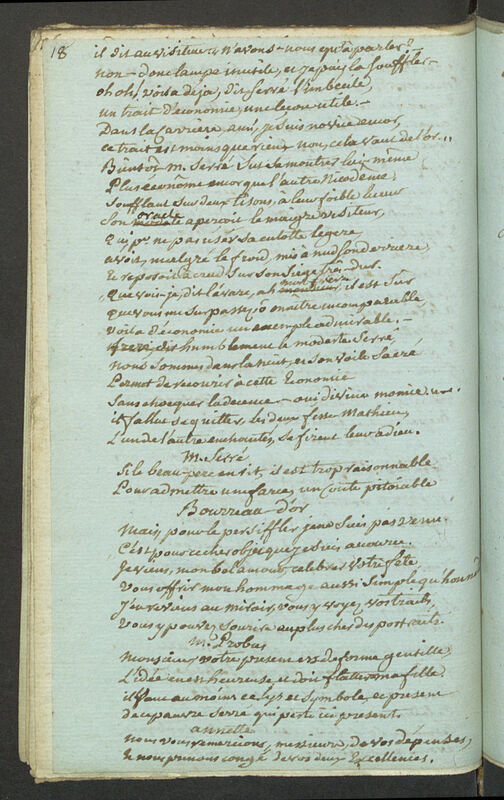 18
il dit au visiteur, n'avons-nous qu'à parler?
non - donc lampe inutile, et je puis la souffler -
oh oh! voila deja, dit Serré l'imbecile,
un trait d'économie, une leçon utile. -
Dans la Carrière, ami, je suis novice encor,
ce trait est moins que rien - non, cela vaut de l'or...
Bientôt M. Serré sut se montrer lui même
Plus econome encor que l'autre Nicodème.
Soufflant sur deux tisons, à leur foible lueur
Son oracle aperçoit le maigre visiteur,
Qui pr. ne pas user sa culotte legère,
avoit, malgré le froid, mis à nud son derrière
Et reposoit à crud sur son Siège dur.
Que vois-je, dit l'avare, ah mon frère, il est sur
que vous me surpassez, ô maître incomparable,
voila d'économie un exemple admirable. -
frere, dit humblement le modeste Serré,
Nous sommes dans la nuit, et son voile sacré
Permet de recourir à cette Economie
Sans choquer la decence - oui divine momie
il fallut se quitter, les deux fesse Mathieu,
L'un de l'autre enchantés, se firent leur adieu.
M. Serré
Si le beau-pere en rit, il est trop raisonnable
Pour admettre une farce, un conte pitoiable
Bourreau d'or
Mais, pour le persiffler je ne suis pas venu.
C'est pour cet objet que je suis accouru.
Je viens, mon bel amour, celebrer votre fête,
Vous offrir mon hommage aussi simple qu'honnête
J'ai recours au miroir, vous y voyez vos traits,
Vous y pouvez sourire au plus cher des portraits.
Mr. Probus
Monsieur, votre present est de forme gentille.
L'idée en est heureuse et doit flatter ma fille.
il faut au moins ce lys et symbole, et present
de ce pauvre Serré qui peste ici present.
annette
nous vous remercions, messieurs, de vos dépenses,
Et nous prenons congé de vos deux Excellences.